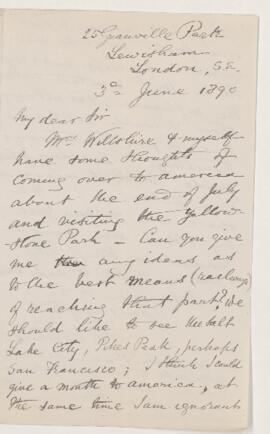 25 Granville Park
Lewisham
London, S.E.
3d June 1890
My dear Sir
Mrs Wiltshire & myself
have some thoughts of
coming over to america
about the end of July
and visiting the Yellow-
Stone Park – Can you give
me any ideas as
to the best means (railways)
of reaching that part? We
should like to see the Salt
Lake City, Pikes Peak, perhaps
San Francisco; I think I could
give a month to america, at
the same time I am ignorant